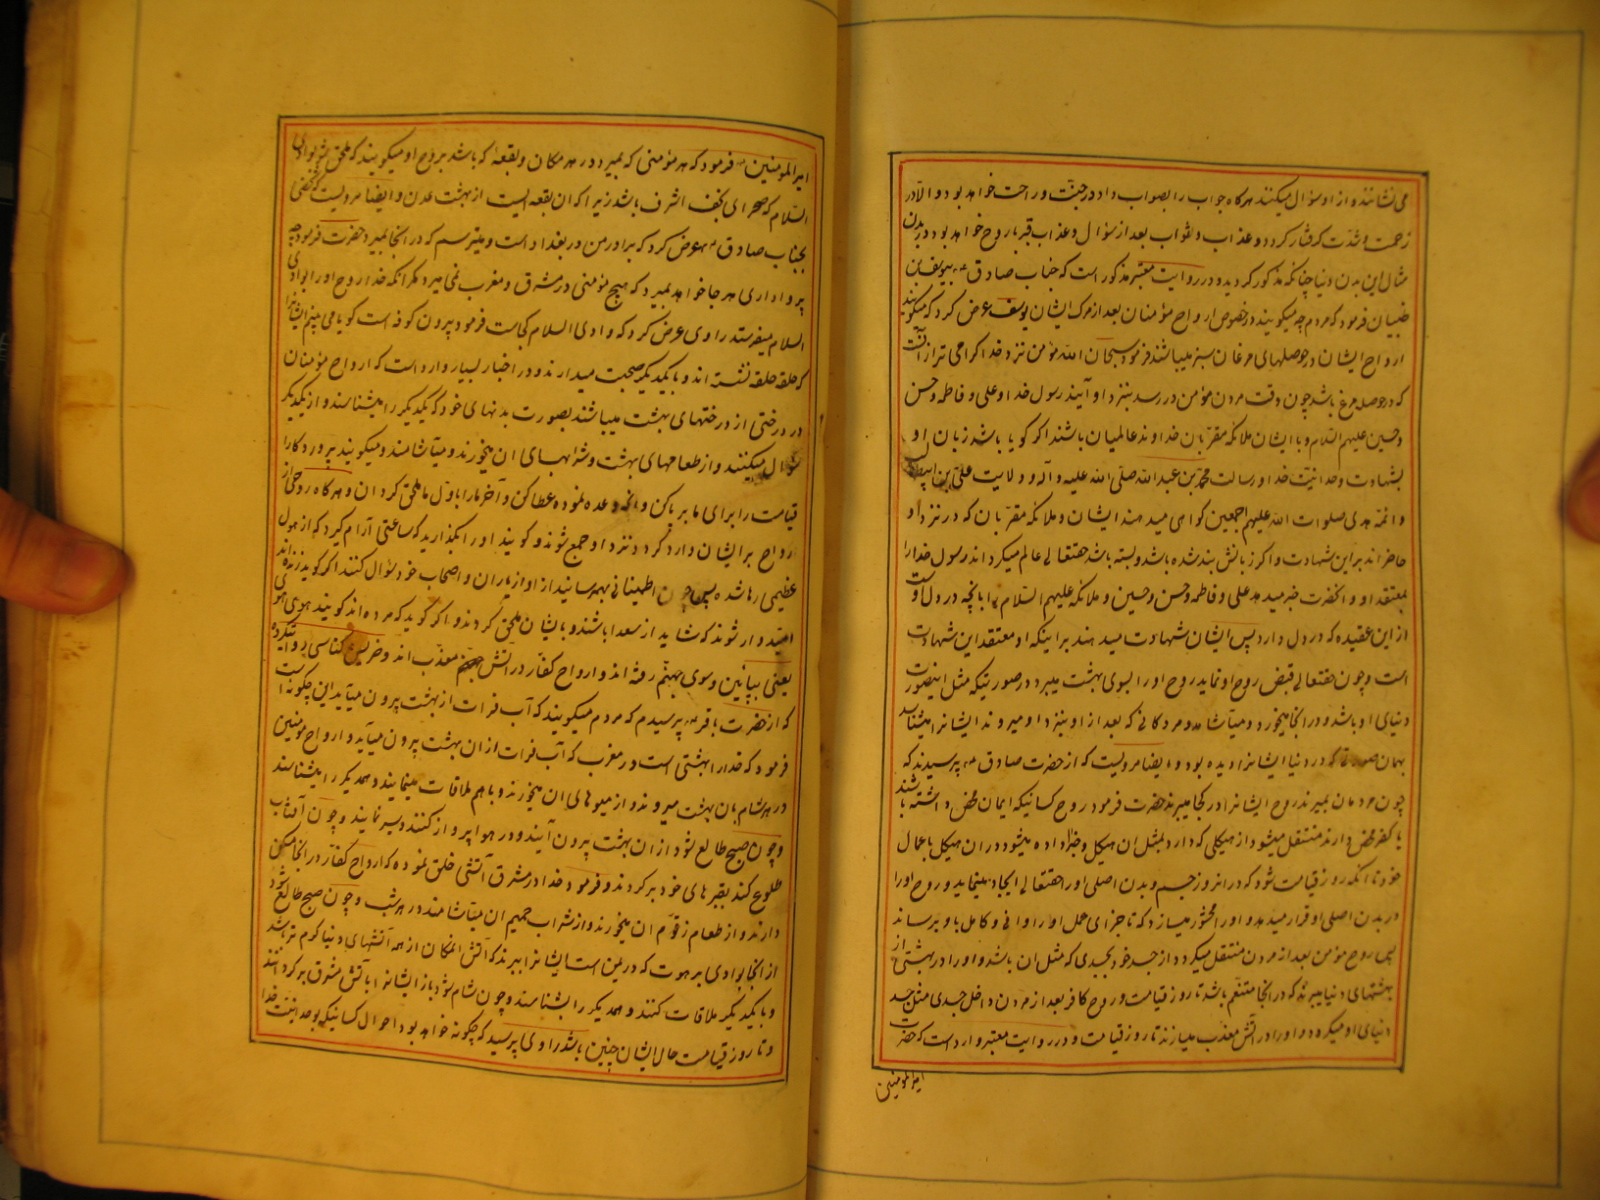 می نشانند و از او سؤال میکنند هرکاه جواب را بصواب داد در جنت و راحت خواهد بود و الا در
زحمت و شدت کرفتار کردد و عذاب و ثواب بعد از سؤال و عذاب قبر با روح خواهد بود در بدن
مثال این بدن دنیا چنانکه مذکور کردید و در روایت معتبر مذکور است که جناب صادق ع بیونس بن
ظبیان فرمود که مردم چه میکویند در خصوص ارواح مؤمنان بعد از مرک ایشان یوسف عرض کرد که میکویند
ارواح ایشان در حوصلهای مرغان سبز میباشند فرمود سبحان الله مؤمن نزد خدا کرامی تر از آنست
که در حوصله مرغ باشد چون وقت مردن مؤمن در رسد بنزد او آیند رسول خدا و علی و فاطمه و حسن
و حسین علیهم السلام و با ایشان ملائکه مقربان خداوند عالمیان باشند اکر کویا باشد زبان او
بشهادت وحدانیت خدا و رسالت محمد بن عبدالله صلی الله علیه و آله و ولایت علی بن ابیطالب
و ائمه هدی صلوات الله علیهم اجمعین کواهی میدهند ایشان و ملائکه مقربان که در نزد او
حاضراند بر این شهادت و اکر زبانش بند شده باشد و بسته باشد حقتعالی عالم میکرداند رسول خدا را
بمعتقد او و انحضرت خبر میدهد علی و فاطمه و حسن و حسین و ملائکه علیهم السلام را بانچه در دل اوست
از این عقیده که در دل دارد پس ایشان شهادت میدهند بر اینکه او معتقد این شهادت
است و چون حقتعالی قبض روح او نماید روح او را بسوی بهشت میبرد در صورتیکه مثل اینصورت
دنیای او باشد و در انجا میخورد و میآشامد و مردکانی که بعد از او بنزد او میروند ایشانرا میشناسد
بهمان صورتی که در دنیا ایشانرا دیده بود و ایضا مرویست که از حضرت صادق ع پرسیدند که
چون مردمان بمیرند روح ایشانرا در کجا میبرند حضرت فرمود روح کسانیکه ایمان محض داشته باشند
یا کفر محض دارند منتقل میشود از هیکلی که دارد بمثل ان هیکل و جزا داده میشود در ان هیکل باعمال
خود تا انکه روز قیامت شود که در انروز جسم و بدن اصلی او را حقتعالی ایجاد مینماید و روح او را
در بدن اصلی او قرار میدهد و او را محشور میسازد که تا جزای عمل او را وافی و کامل باو برساند
پس روح مؤمن بعد از مردن منتقل میکردد از جسد خود بجسدی که مثل ان باشد و او را در بهشتی از
بهشتهای دنیا میبرند که در انجا متنعم باشد تا روز قیامت و روح کافر بعد از مردن داخل جسدی مثل جسد
دنیای او میکردد و او را در آتش معذب میسازند تا روز قیامت و در روایت معتبر وارد است که حضرت
امیرالمؤمنین
امیرالمؤمنین ع فرمود که هر مؤمنی که بمیرد در هر مکان و بقعه که باشد بروح او میکویند که ملحق شو بوادی
السلام که صحرای نجف اشرف باشد زیرا که ان بقعه ایست از بهشت عدن و ایضا مرویست که شخصی
بجناب صادق ع عرض کرد که برادر من در بغداد است و میترسم که در انجا بمیرد حضرت فرمود چه
پروا داری هر جا خواهد بمیرد که هیچ مؤمنی در مشرق و مغرب نمی میرد مکر انکه خدا روح او را بوادی
السلام میفرستد راوی عرض کرد که وادی السلام کجاست فرمود بیرون کوفه است کویا می بینم ایشانرا
که حلقه حلقه نشسته اند و با یکدیکر صحبت میدارند و در اخبار بسیار وارد است که ارواح مؤمنان
در درختی از درختهای بهشت میباشند بصورت بدنهای خود که یکدیکر را میشناسند و از یکدیکر
سؤال میکنند و از طعامهای بهشت و شرابهای ان میخورند و میآشامند و میکویند پروردکارا
قیامت را برای ما برپا کن و انچه وعده نموده عطا کن و آخر ما را باول ما ملحق کردان و هرکاه روحی از
ارواح بر ایشان وارد کردد نزد او جمع شوند و کویند او را بکذارید که ساعتی آرام کیرد که از هول
عظیمی رها شده پس چون اطمینانی بهم رسانید از او از یاران و اصحاب خود سؤال کنند اکر کوید زنده اند
امیدوار شوند که شاید از سعدا باشند و بایشان ملحق کردند و اکر کوید که مرده اند کویند هوی هوی
یعنی بپائین و سوی جهنم رفته اند و ارواح کفار در آتش جهنم معذب اند و ضریس کناسی روایتکرده
که از حضرت باقر ع پرسیدم که مردم میکویند که آب فرات از بهشت بیرون میآید این چکونه است
فرمود که خدا را بهشتی است در مغرب که آب فرات از ان بهشت بیرون میآید و ارواح مؤمنین
در هر شام بان بهشت میروند و از میوهای ان میخورند و با هم ملاقات مینمایند و همدیکر را میشناسند
و چون صبح طالع شود از ان بهشت بیرون آیند و در هوا پرواز کنند و سیر نمایند و چون آفتاب
طلوع کند بقبرهای خود برکردند و فرمود خدا در مشرق آتشی خلق نموده که ارواح کفار در انجا مسکن
دارند و از طعام زقوم ان میخورند و از شراب حمیم ان میآشامند در هر شب و چون صبح طالع شود
از انجا بوادی برهوت که در یمن است ایشانرا ببرند که آتش انمکان از همه آتشهای دنیا کرم تر باشد
و با یکدیکر ملاقات کنند و همدیکر را بشناسند و چون شام شود باز ایشانرا بآتش مشرق برکردانند
و تا روز قیامت حال ایشان چنین باشد راوی پرسید که چکونه خواهد بود احوال کسانیکه بوحدانیت خدا